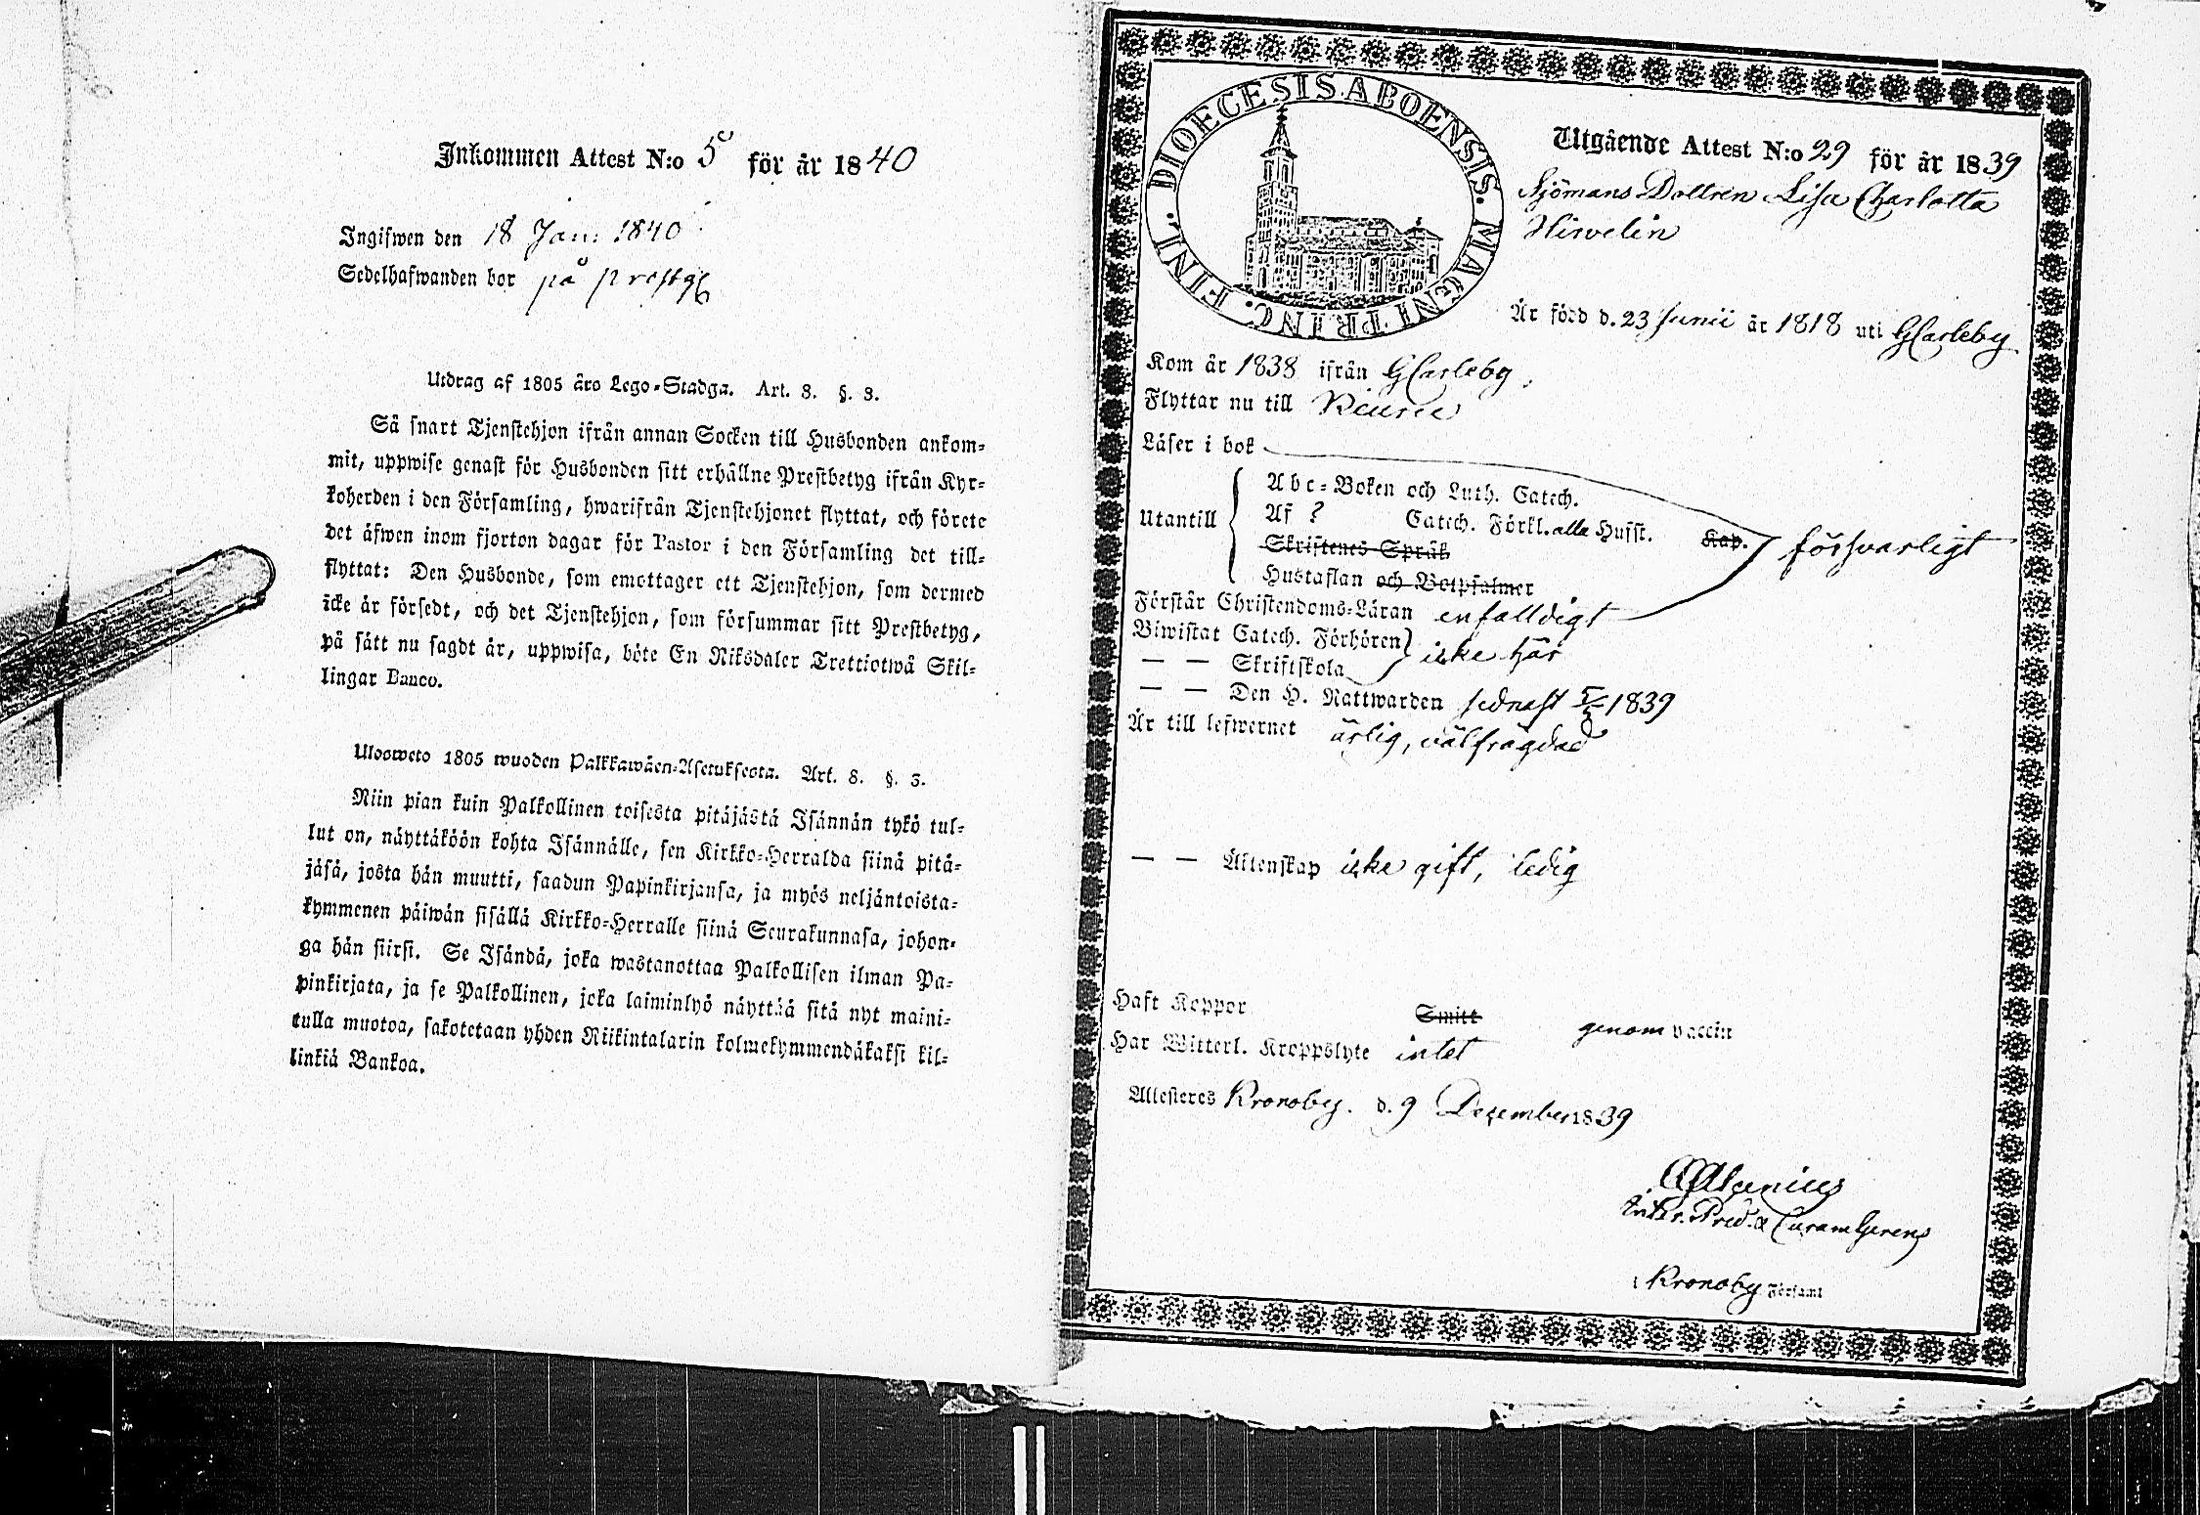 Inkommen Attest N:o 5 för år 1840
Ingifwen den 18 Jan: 1840
Sedelhafwanden bor på prestg
Utdrag af 1805 års Lego-Stadga. Art. 8. §. 3.
Så snart Tjenstehjon ifrån annan Socken till Husbonden ankom-
mit, uppwise genast för Husbonden sitt erhållne Prestbetyg ifrån Kyr-
koherden i den Församling, hwarifrån Tjenstehjonet flyttat, och förete
det äfwen inom fjorton dagar för Pastor i den Församling det till-
flyttat: Den Husbonde, som emottager ett Tjenstehjon, som dermed
icke är försedt, och det Tjenstehjon, som försummar sitt Prestbetyg,
på sätt nu sagdt är, uppwisa, böte En Riksdaler Trettiotwå Skil-
lingar Banco.
Ulosweto 1805 wuoden Palkkawäen-Asetuksesta. Art. 8. §. 3.
Niin pian kuin Palkollinen toisesta pitäjästä Isännän tykö tul-
lut on, näyttäköön kohta Isännälle, sen Kirkko-Herralda siinä pitä-
jäsä, josta hän muutti, saadun Papinkirjansa, ja myös neljäntoista-
kymmenen päiwän sisällä Kirkko-Herralle siinä Seurakunnasa, johon-
ga hän siirsi. Se Isändä, joka wastanottaa Palkollisen ilman Pa-
pinkirjata, ja se Palkollinen, joka laiminlyö näyttää sitä nyt maini-
tulla muotoa, sakotetaan yhden Riikintalarin kolmekymmendäkaksi kil-
linkiä Bankoa.
DIOECESIS ABOENSIS. MAGNI PRINC. FINL.
Utgående Attest N:o 29 för år 1839
Sjömans Dottren Lisa Charlotta
Hirvelin
Är född d. 23 Junii år 1818 uti GCarleby
Kom år 1838 ifrån GCarleby
Flyttar nu till
Läser i bok
Utantill
Abc-Boken och Luth. Catech.
Af ? Catech. Förkl. alla Husst. Kap. försvarligt
Skriftenes Språk
Hustaflan och Botpsalmer
Förstår Christendoms-Läran enfalldigt
Biwistat Catech. Förhören icke här
— — Skriftskola
— — Den H. Nattwarden sednast 1839
Är till lefwernet ärlig, välfrägdad
— — Äktenskap icke gift, ledig
Haft Koppor Smitt genom vaccin
Har Witterl. Kroppslyte intet
Attesteras Kronoby. d. 9 December 1839
Curam Gerens
i Kronoby Församl